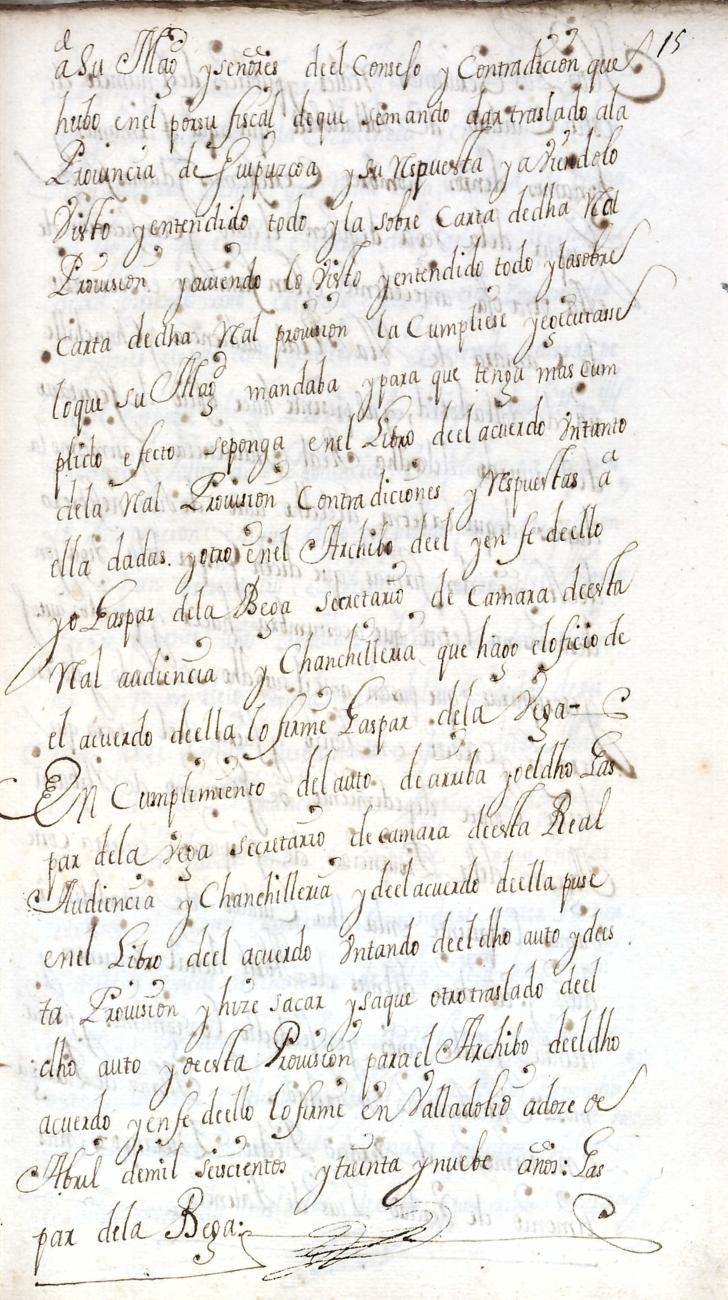 15
a Su Magd y señores deel Consejo y Contradicion que
hubo enel porsu fiscal deque semando dar traslado ala
Prouincia de Guipuzcoa y su Respuesta y auiendolo
Visto y entendido todo y la sobre Carta dedha Real
Prouision y auiendo lo Visto y entendido todo y la sobre
Carta dedha Real prouision la Cumpliese y executasse
loque su Magd mandaba y para que tenga mas cum
plido efecto seponga enel Libro deel acuerdo Vntanto
dela Real Prouision Contradiciones y Respuestas a
ella dadas. y otro enel Archibo deel y en fe deello
yo Gaspar dela Bega secretario de Camara deesta
Real audiencia y Chanchilleria que hago eloficio de
el acuerdo deella lo firme Gaspar dela Vega
En Cumplimiento delauto dearriba yo eldho Gas
par dela Vega secretario de camara deesta Real
Audiencia y Chanchilleria y deel acuerdo deella puse
enel Libro deel acuerdo Vntando deel dho auto y dees
ta Prouision y hize sacar y saque otro traslado deel
dho auto y deesta Prouision para el Archibo deel dho
acuerdo y en fe deello lo firme en Valladolid adoze de
Abril demil seiscientos y treinta y nuebe años: Gas
par dela Bega: